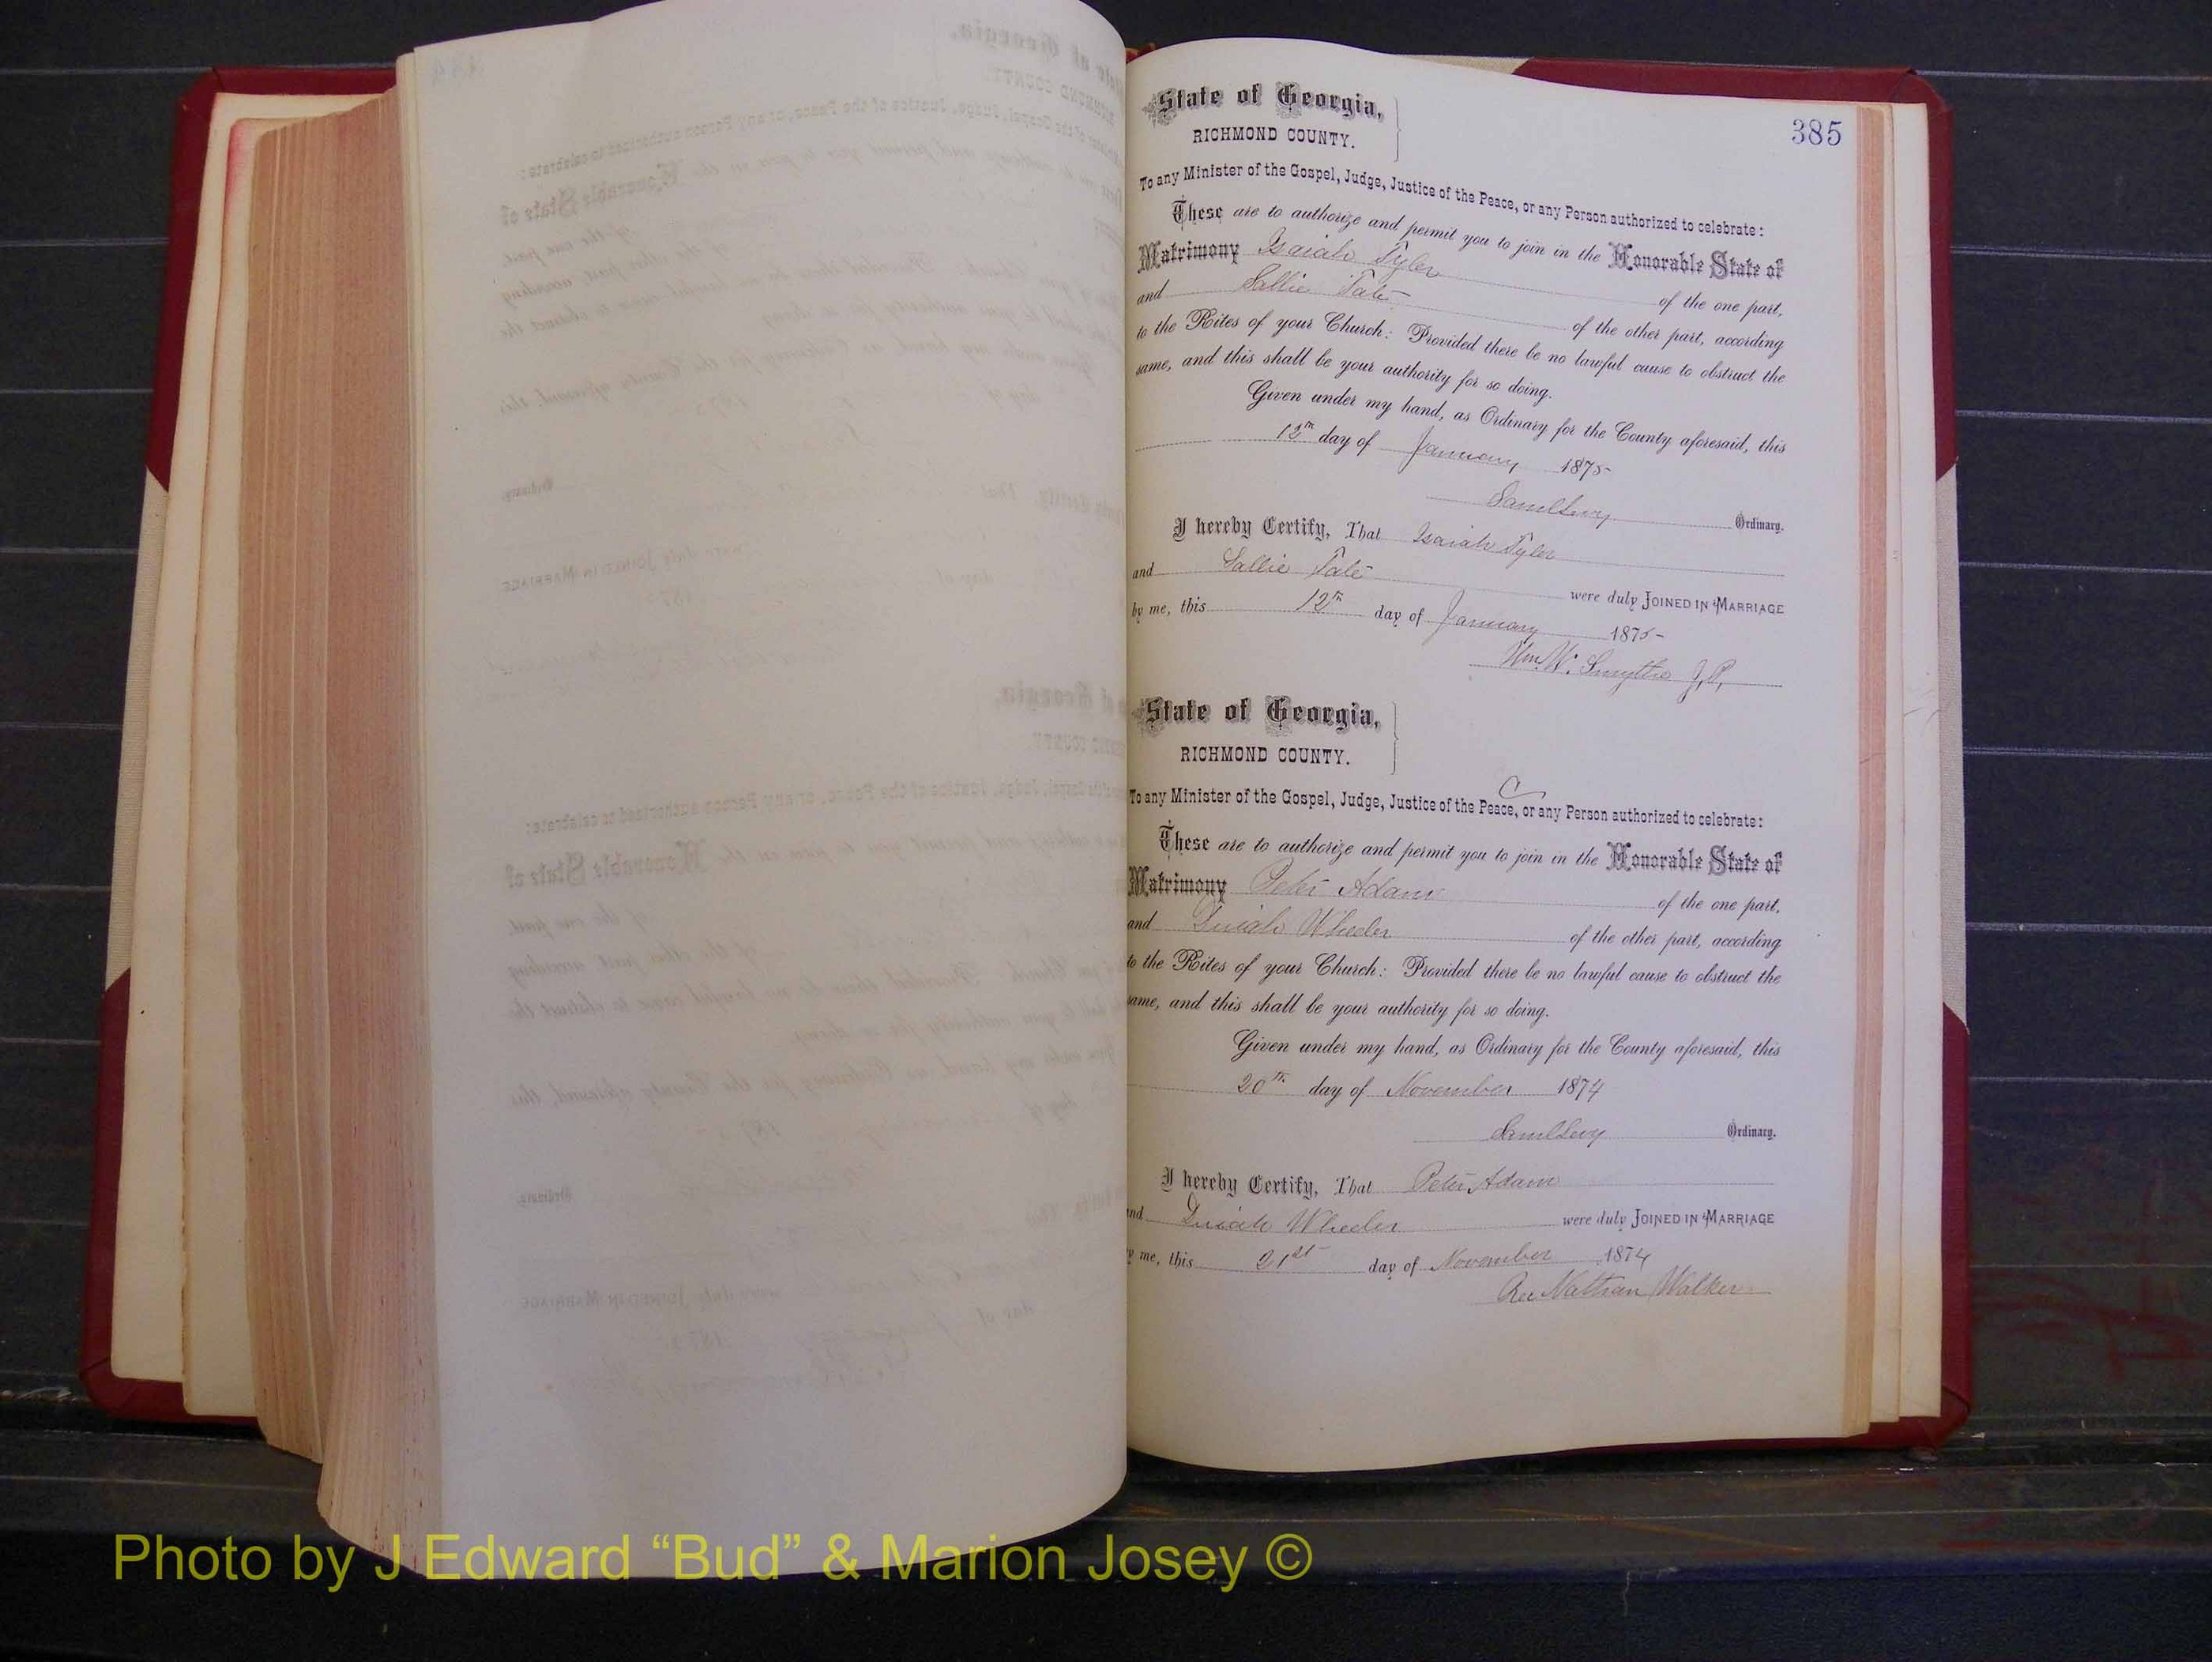 385
State of Georgia,
RICHMOND COUNTY.
To any Minister of the Gospel, Judge, Justice of the Peace, or any Person authorized to celebrate:
These are to authorize and permit you to join in the Honorable State of
Matrimony Isaiah Tyler of the one part,
and Sallie Tate of the other part, according
to the Rites of your Church: Provided there be no lawful cause to obstruct the
same, and this shall be your authority for so doing.
Given under my hand, as Ordinary for the County aforesaid, this
12th day of January 1875
Saml Levy Ordinary.
I hereby Certify, That Isaiah Tyler
and Sallie Tate were duly JOINED IN MARRIAGE
by me, this 12th day of January 1875
Wm. W. Smythe J,P,
State of Georgia,
RICHMOND COUNTY.
C
To any Minister of the Gospel, Judge, Justice of the Peace, or any Person authorized to celebrate:
These are to authorize and permit you to join in the Honorable State of
Matrimony Peter Adam of the one part,
and Wheeler of the other part, according
to the Rites of your Church: Provided there be no lawful cause to obstruct the
same, and this shall be your authority for so doing.
Given under my hand, as Ordinary for the County aforesaid, this
20th day of November 1874
Saml Levy Ordinary.
I hereby Certify, That Peter Adam
and Wheeler were duly JOINED IN MARRIAGE
by me, this 21st day of November 1874
Rev Nathan Walker
Photo by J Edward “Bud” & Marion Josey ©